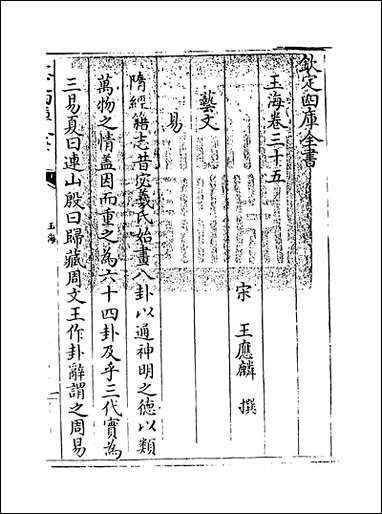 欽定四庫全書
玉海卷三十五
宋 王應麟 撰
藝文
易
隋經籍志昔宓羲氏始畫八卦以通神明之德以類
萬物之情蓋因而重之為六十四卦及乎三代實為
三易夏曰連山殷曰歸藏周文王作卦辭謂之周易
玉海